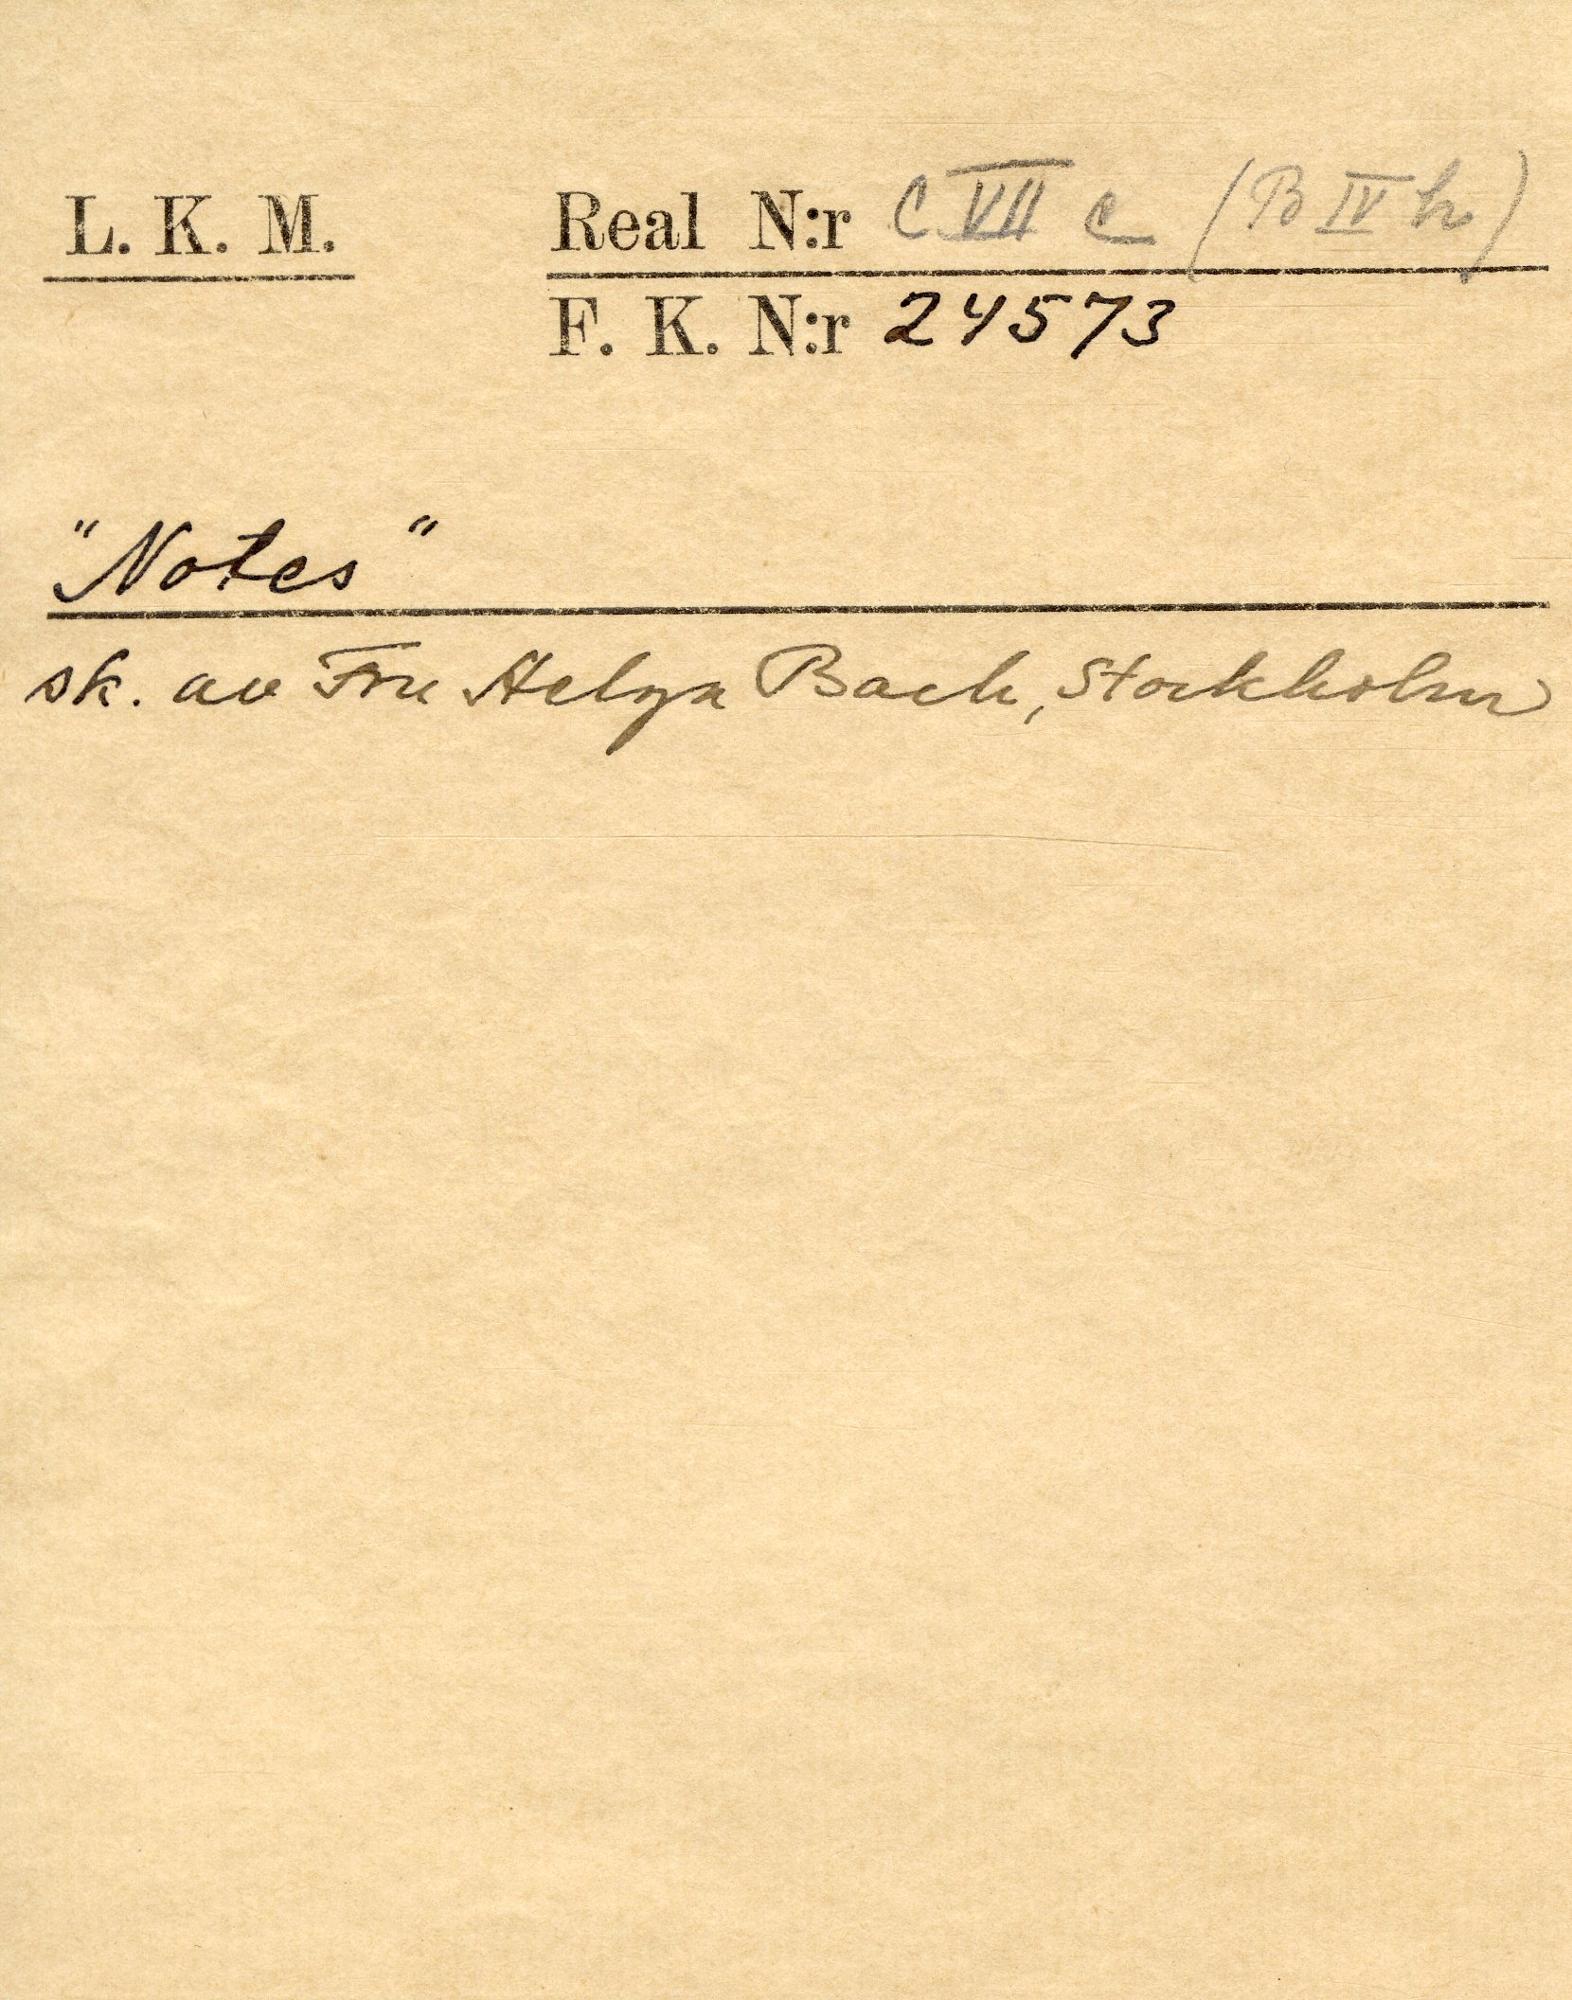 L. K. M. Real N:r C VII c (B IV h)
F. K. N:r 24573
"Notes"
sk. av Fru Helga Bach, Stockholm